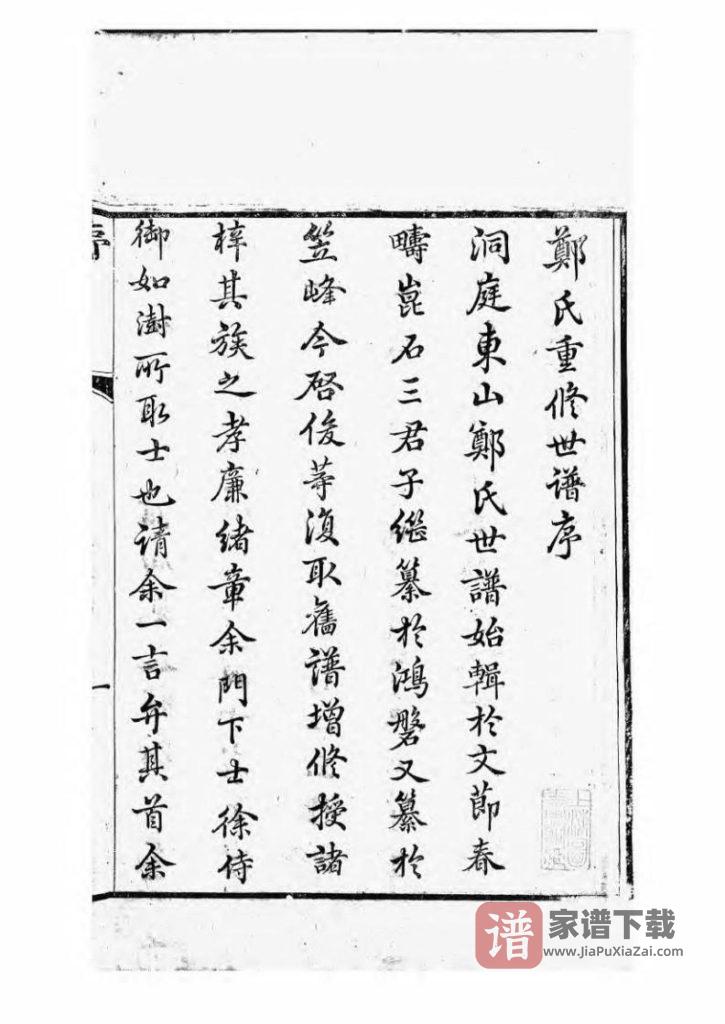 鄭氏重修世譜序
洞庭東山鄭氏世譜始輯於文節春
疇崑石三君子繼纂於鴻磐又纂於
笠峰今啓俊等復取舊譜增修授諸
梓其族之孝廉緒章余門下士徐侍
御如澍所取士也請余一言弁其首余
序
一
谱
家谱下载
www.JiaPuXiaZai.com